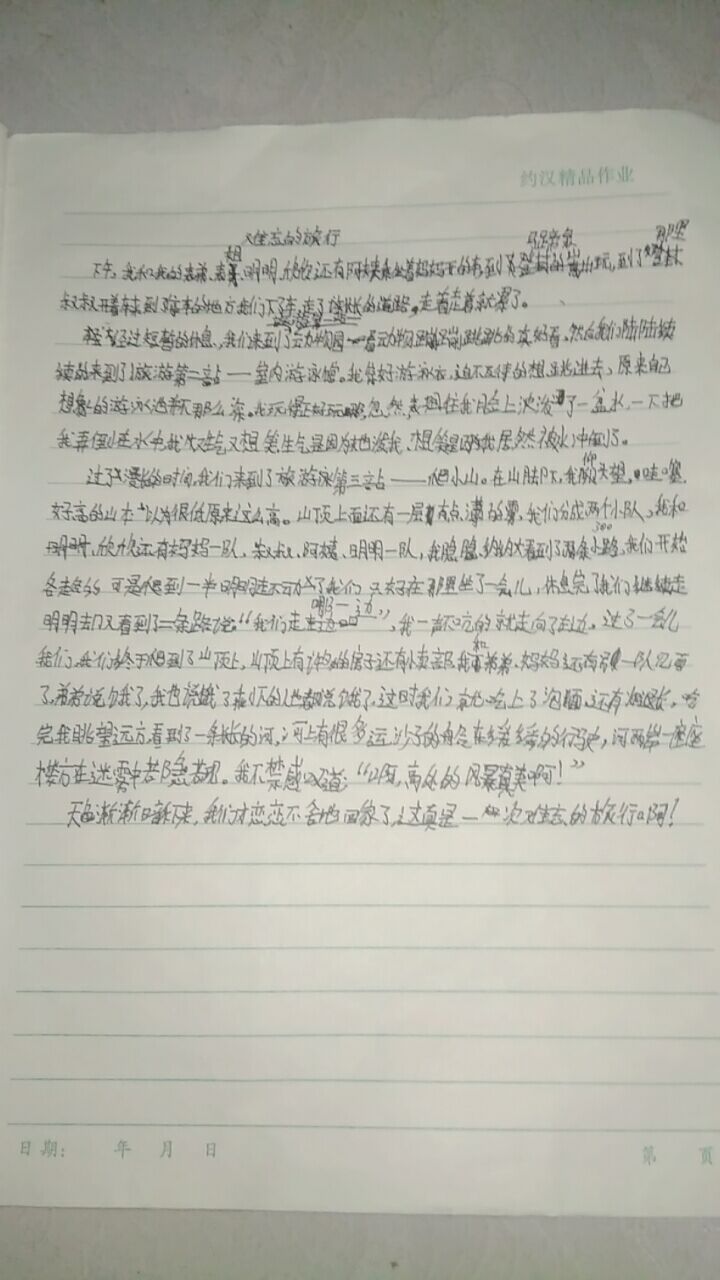 约汉精品作业
难忘的旅行
下午,我和我的表弟、表姐、明明、欣欣还有阿姨
叔叔开着车来到了的地方我们下了车走了漫长的道路。走着走着就累了。
经过短暂的休息,我们来到了动物园看动物蹦蹦跳跳的真好看。然后我们陆陆续
续的来到了旅游第二站——室内游泳馆。我换好游泳衣,迫不及待的想跳进去,原来自
想象的游泳池并不那么深。我玩得正好玩呢忽然表姐往我脸上泼了一盆水,一下把
我弄倒在水中我又生气又想笑生气是因为她泼我、想笑是因为我居然被水冲倒了。
过了漫长的时间,我们来到了旅游第三站——爬小山。在山脚下,我仰头望,哇噻
好高的山本以为很低原来这么高。山顶上面还有一层有点薄的雾,我们分成两个小队,我和
欣欣还有妈妈一队,叔叔、阿姨、明明一队,我隐隐约约看到了两条小路,我们开始
各走各的可是爬到一半明明走不动了我们只好在那里坐了一会儿,休息完了我们继续走
明明却又看到了二条路说:“我们走哪一边”,我一声不吭的就走向了右边。过了一会儿
我们终于爬到了山顶上,山顶上有许多的房子还有小卖部我和弟弟、妈妈一队
了,弟弟说饿了,我也说饿了其他都说饿了,这时我们就吃上了泡面,还有火腿肠,吃
完我眺望远方,看到了一条长的河,河上有很多运沙子的船在缓缓的行驶,河两岸一座座
楼房在迷雾中若隐若现。我不禁感叹道:“啊,离处的风景真美啊!”
天色渐渐暗下来,我们才恋恋不舍地回家了,这真是一次难忘的旅行啊!
日期: 年 月 日
第 页